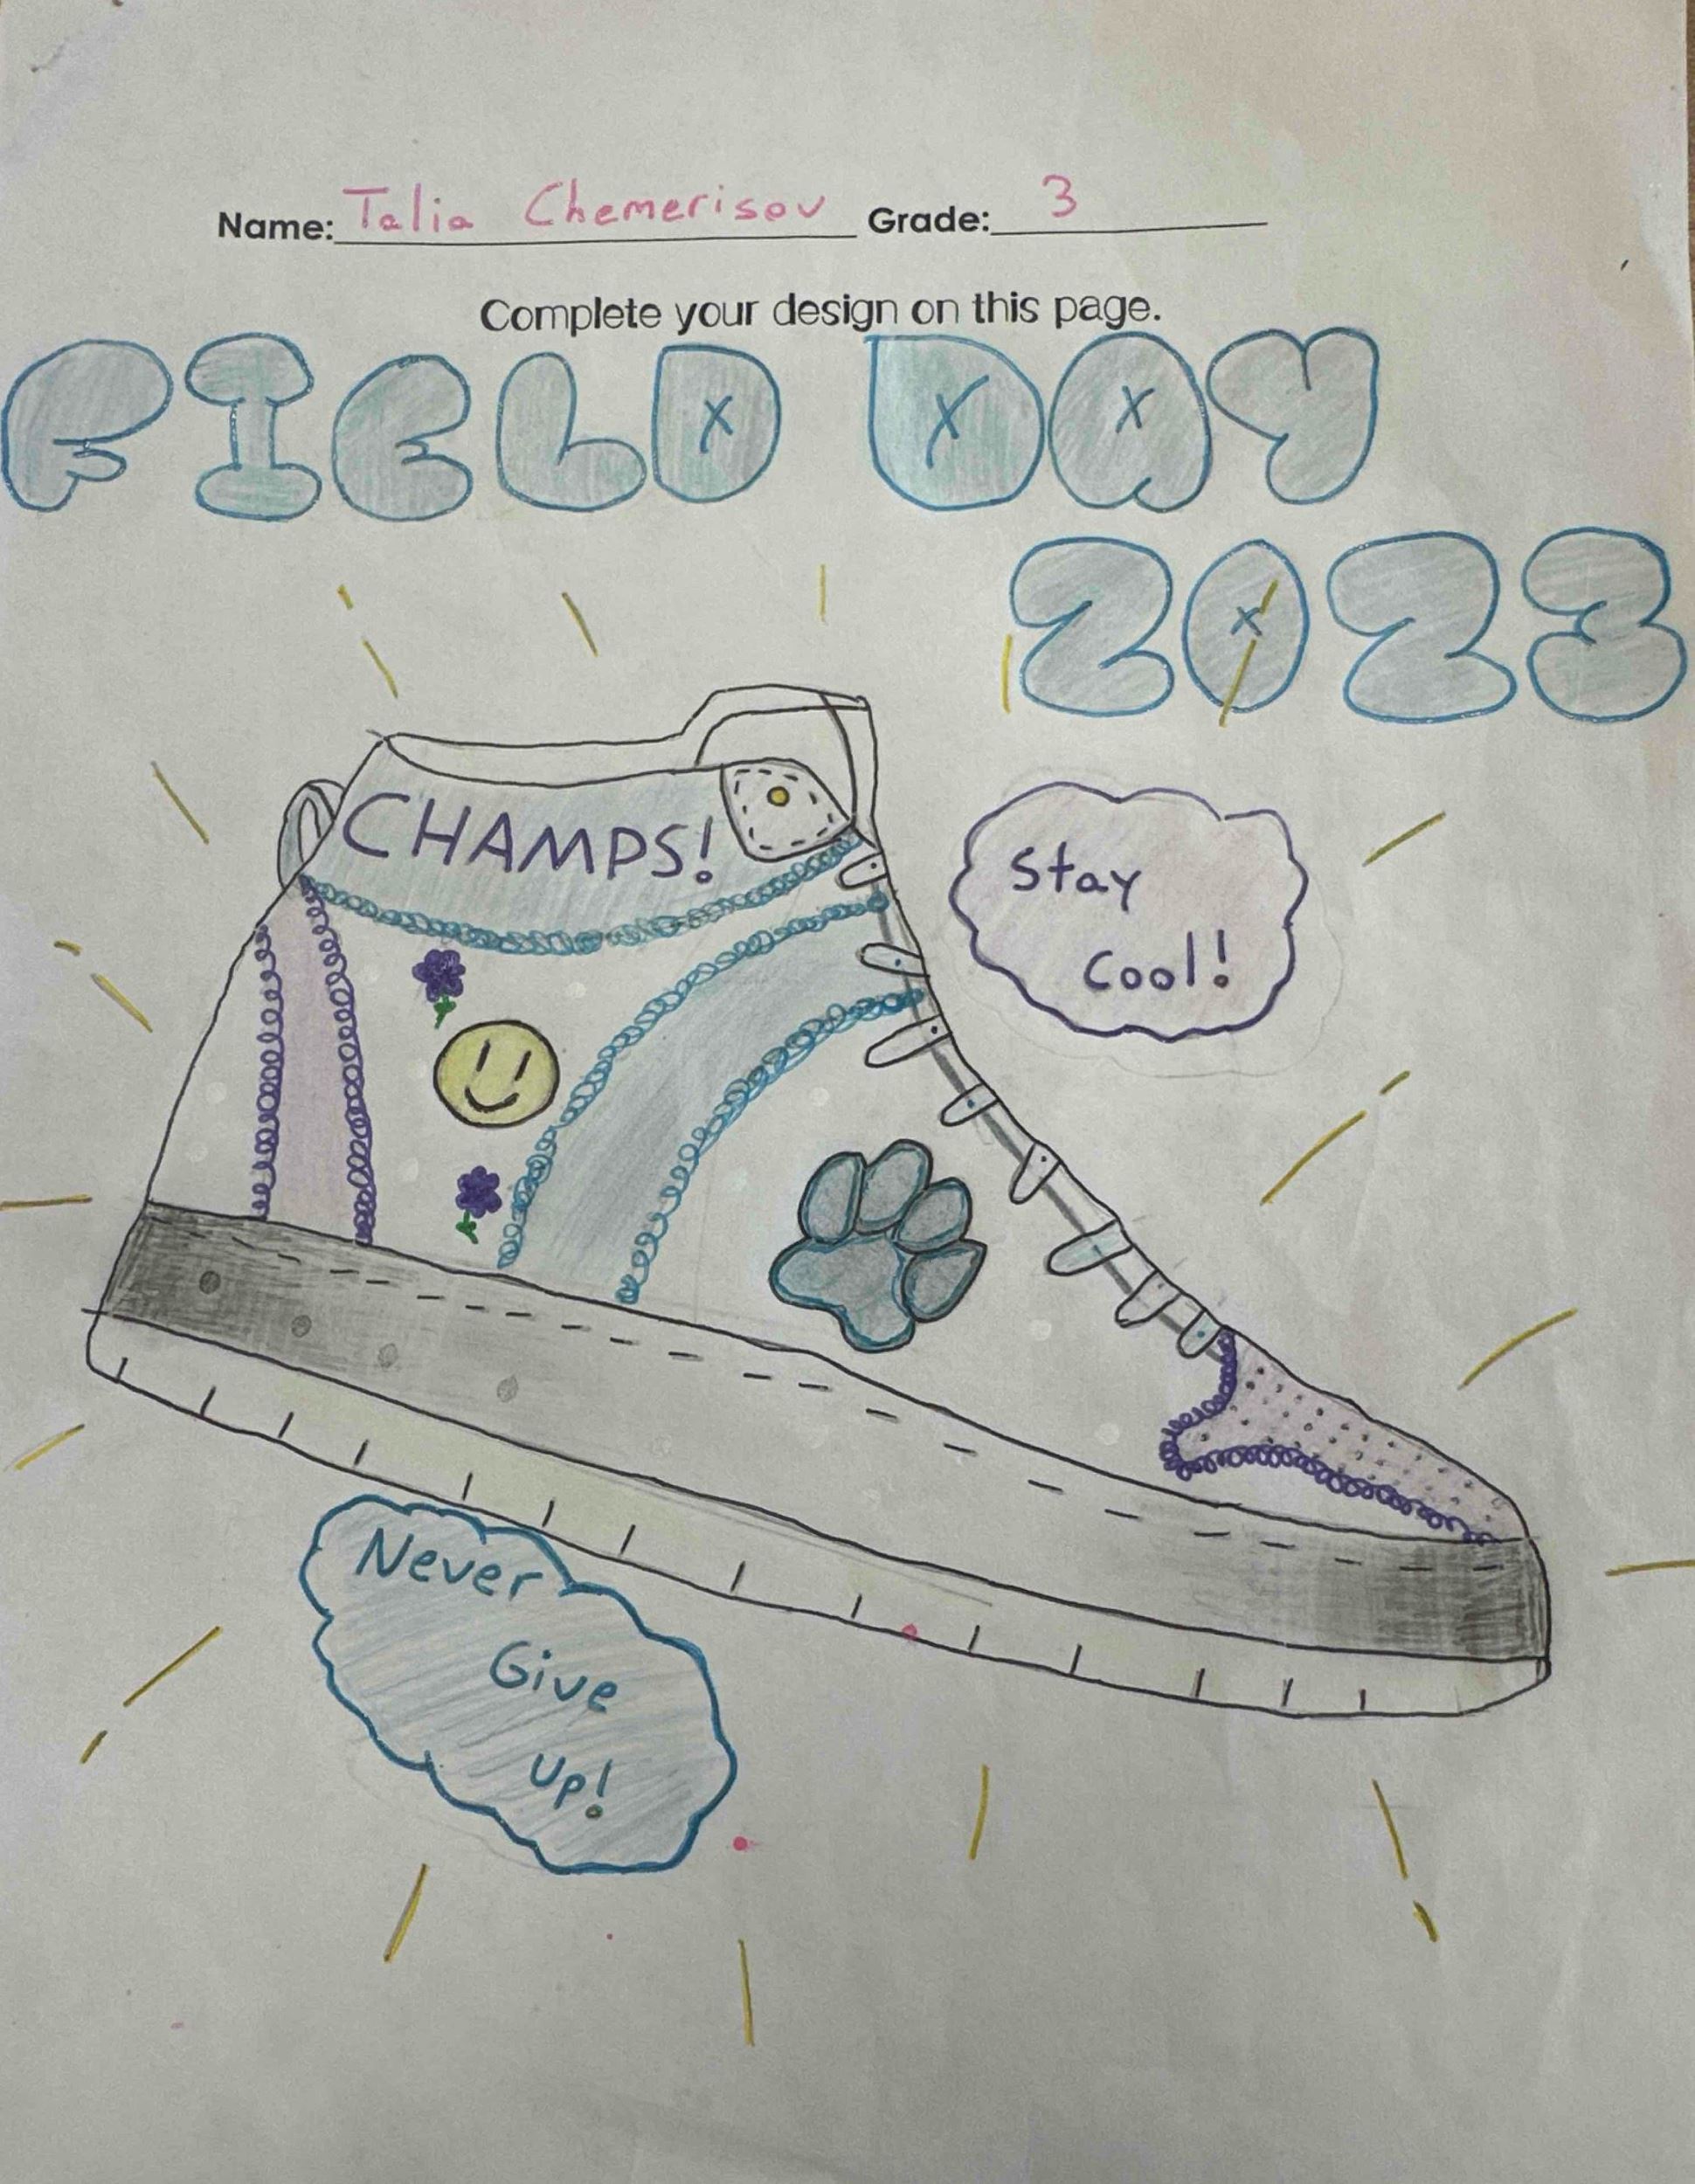 Name: Talia Chemerisov Grade: 3
Complete your design on this page.
FIELD DAY
2023
CHAMPS!
Stay
Cool!
Never
Give
Up!